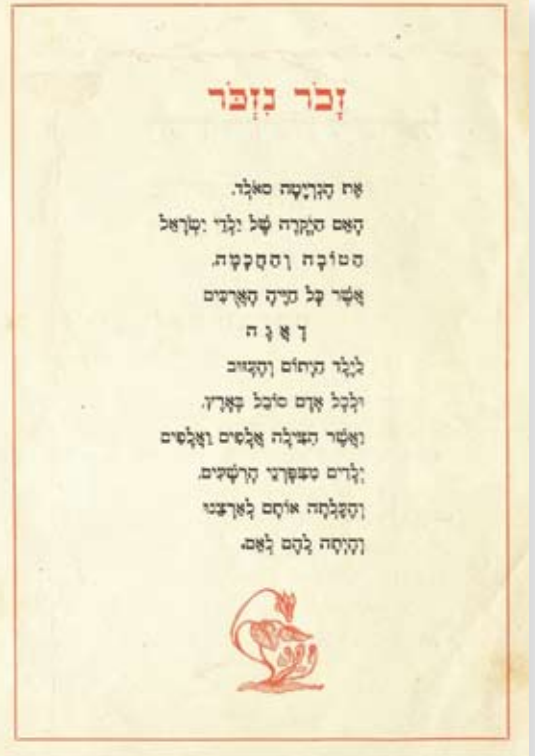 זָכֹר נִזְכֹּר
אֶת הֶנְרִיֶטָה סאֹלְד,
הָאֵם הַיְקָרָה שֶׁל יַלְדֵי יִשְׂרָאֵל
הַטּוֹבָה וְהַחֲכָמָה,
אֲשֶׁר כָּל חַיֶּיהָ הָאֲרֻכִּים
דָּאֲגָה
לַיֶּלֶד הַיָּתוֹם וְהֶעָזוּב
וּלְכָל אָדָם סוֹבֵל בָּאָרֶץ,
וַאֲשֶׁר הִצִּילָה אֲלָפִים וַאֲלָפִים
יְלָדִים מִצִּפָּרְנֵי הָרְשָׁעִים,
וְהֶעֶלְתָה אוֹתָם לְאַרְצֵנוּ
וְהָיְתָה לָהֶם לְאֵם.